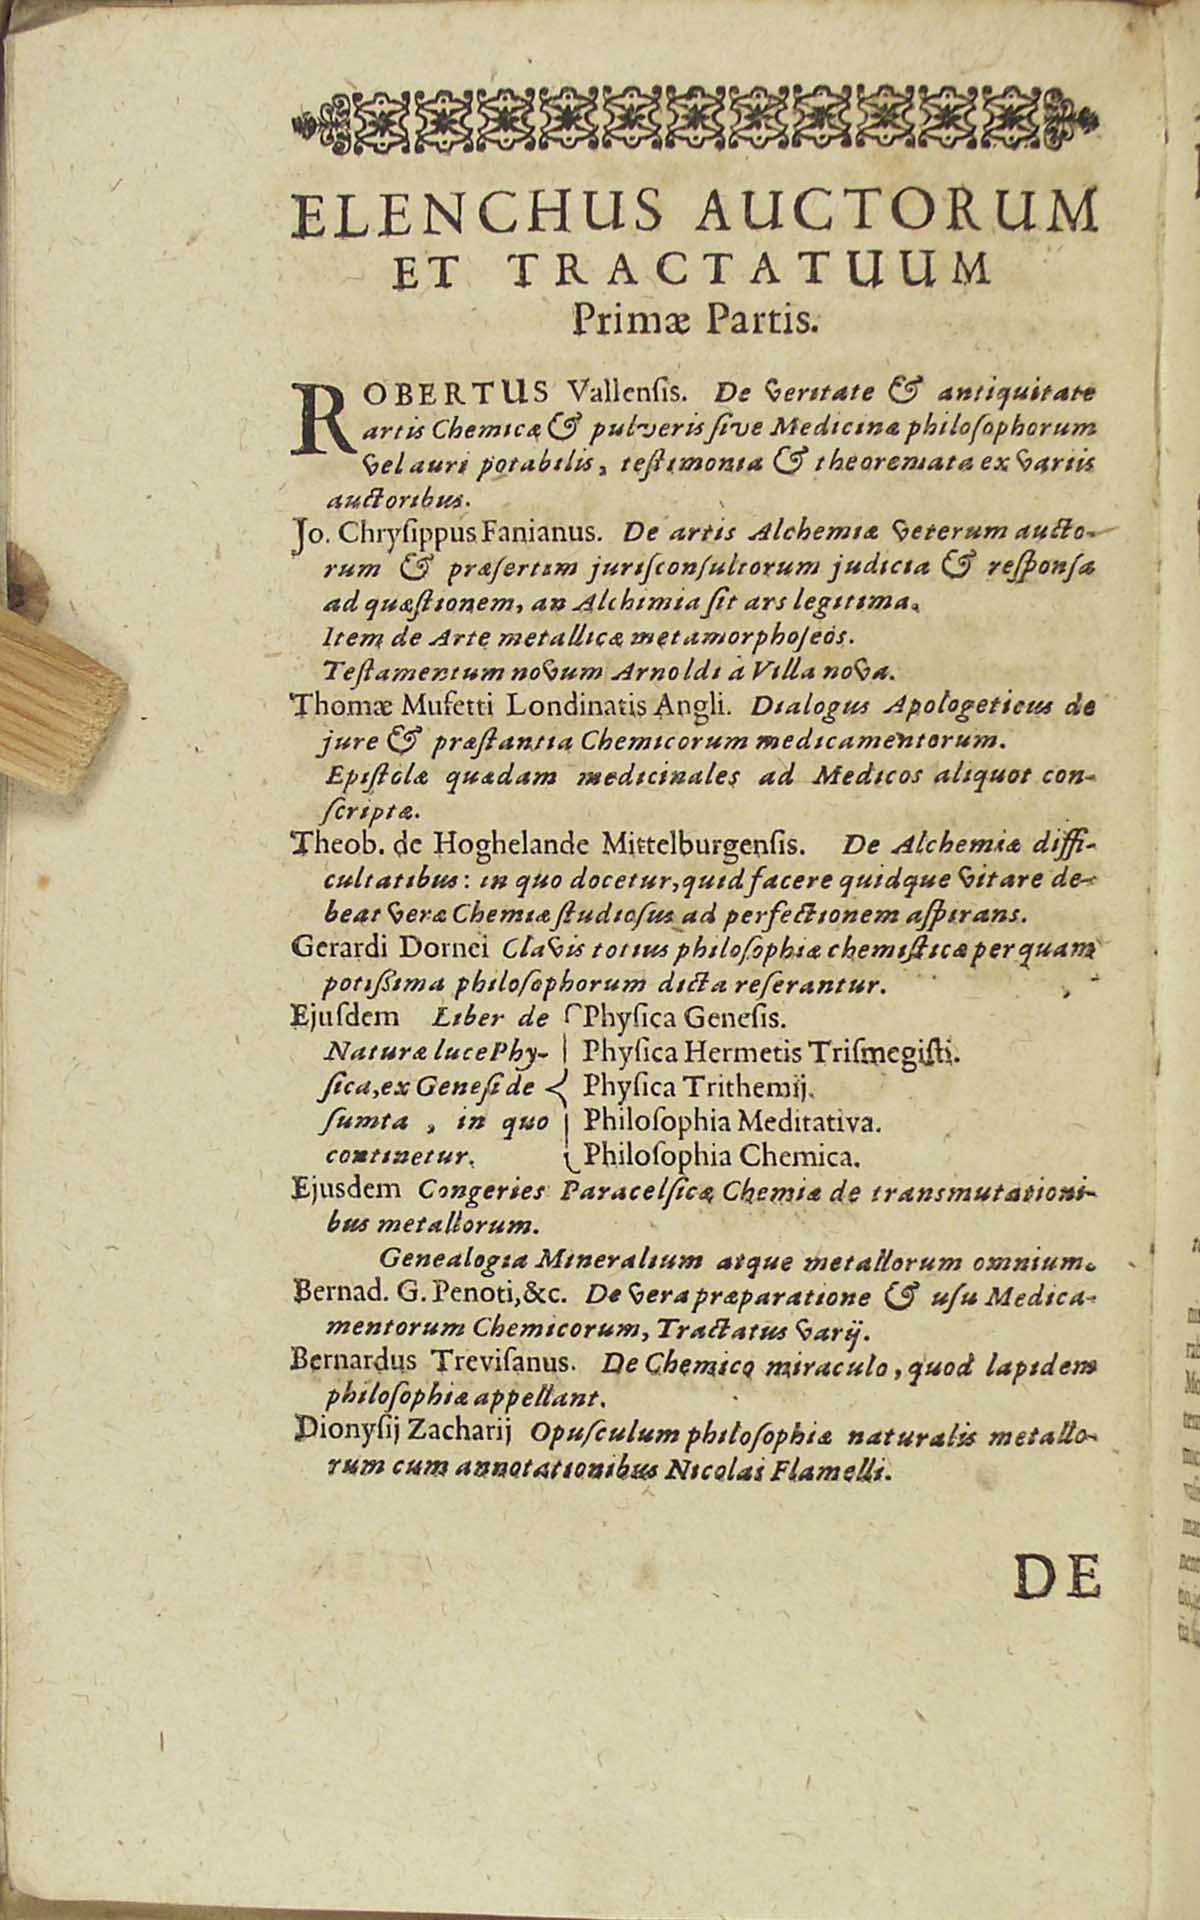 ELENCHUS AUCTORUM
ET TRACTATUUM
Primæ Partis.
ROBERTUS Vallenſis. De veritate & antiquitate
artis Chemicæ & pulveris ſive Medicinæ philoſophorum
vel auri potabilis, teſtimonia & theoremata ex variis
auctoribus.
Jo. Chryſippus Fanianus. De artis Alchemiæ veterum aucto-
rum & præſertim juriſconſultorum judicia & reſponſa
ad quæſtionem, an Alchimia ſit ars legitima.
Item de Arte metallicæ metamorphoſeòs.
Teſtamentum novum Arnoldi à Villa nova.
Thomæ Mufetti Londinatis Angli. Dialogus Apologeticus de
jure & præſtantia Chemicorum medicamentorum.
Epiſtolæ quædam medicinales ad Medicos aliquot con-
ſcriptæ.
Theob. de Hoghelande Mittelburgenſis. De Alchemiæ diffi-
cultatibus: in quo docetur, quid facere quidque vitare de-
beat veræ Chemiæ ſtudioſus ad perfectionem aſpirans.
Gerardi Dornei Clavis totius philoſophiæ chemiſticæ per quam
potiſſima philoſophorum dicta reſerantur.
Ejuſdem Liber de Phyſica Geneſis.
Naturæ luce Phy- Phyſica Hermetis Triſmegiſti.
ſica, ex Geneſi de Phyſica Trithemij.
ſumta, in quo Philoſophia Meditativa.
continetur. Philoſophia Chemica.
Ejusdem Congeries Paracelſicæ Chemiæ de transmutationi-
bus metallorum.
Genealogia Mineralium atque metallorum omnium.
Bernad. G. Penoti, &c. De vera præparatione & uſu Medica-
mentorum Chemicorum, Tractatus varij.
Bernardus Treviſanus. De Chemico miraculo, quod lapidem
philoſophiæ appellant.
Dionyſij Zacharij Opuſculum philoſophiæ naturalis metallo-
rum cum annotationibus Nicolai Flamelli.
DE